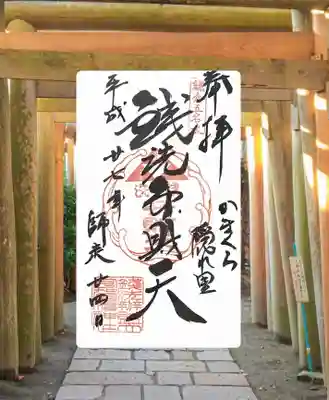 奉拝
かまくら
隠れ里
銭洗弁財天
平成廿七年師走廿四日